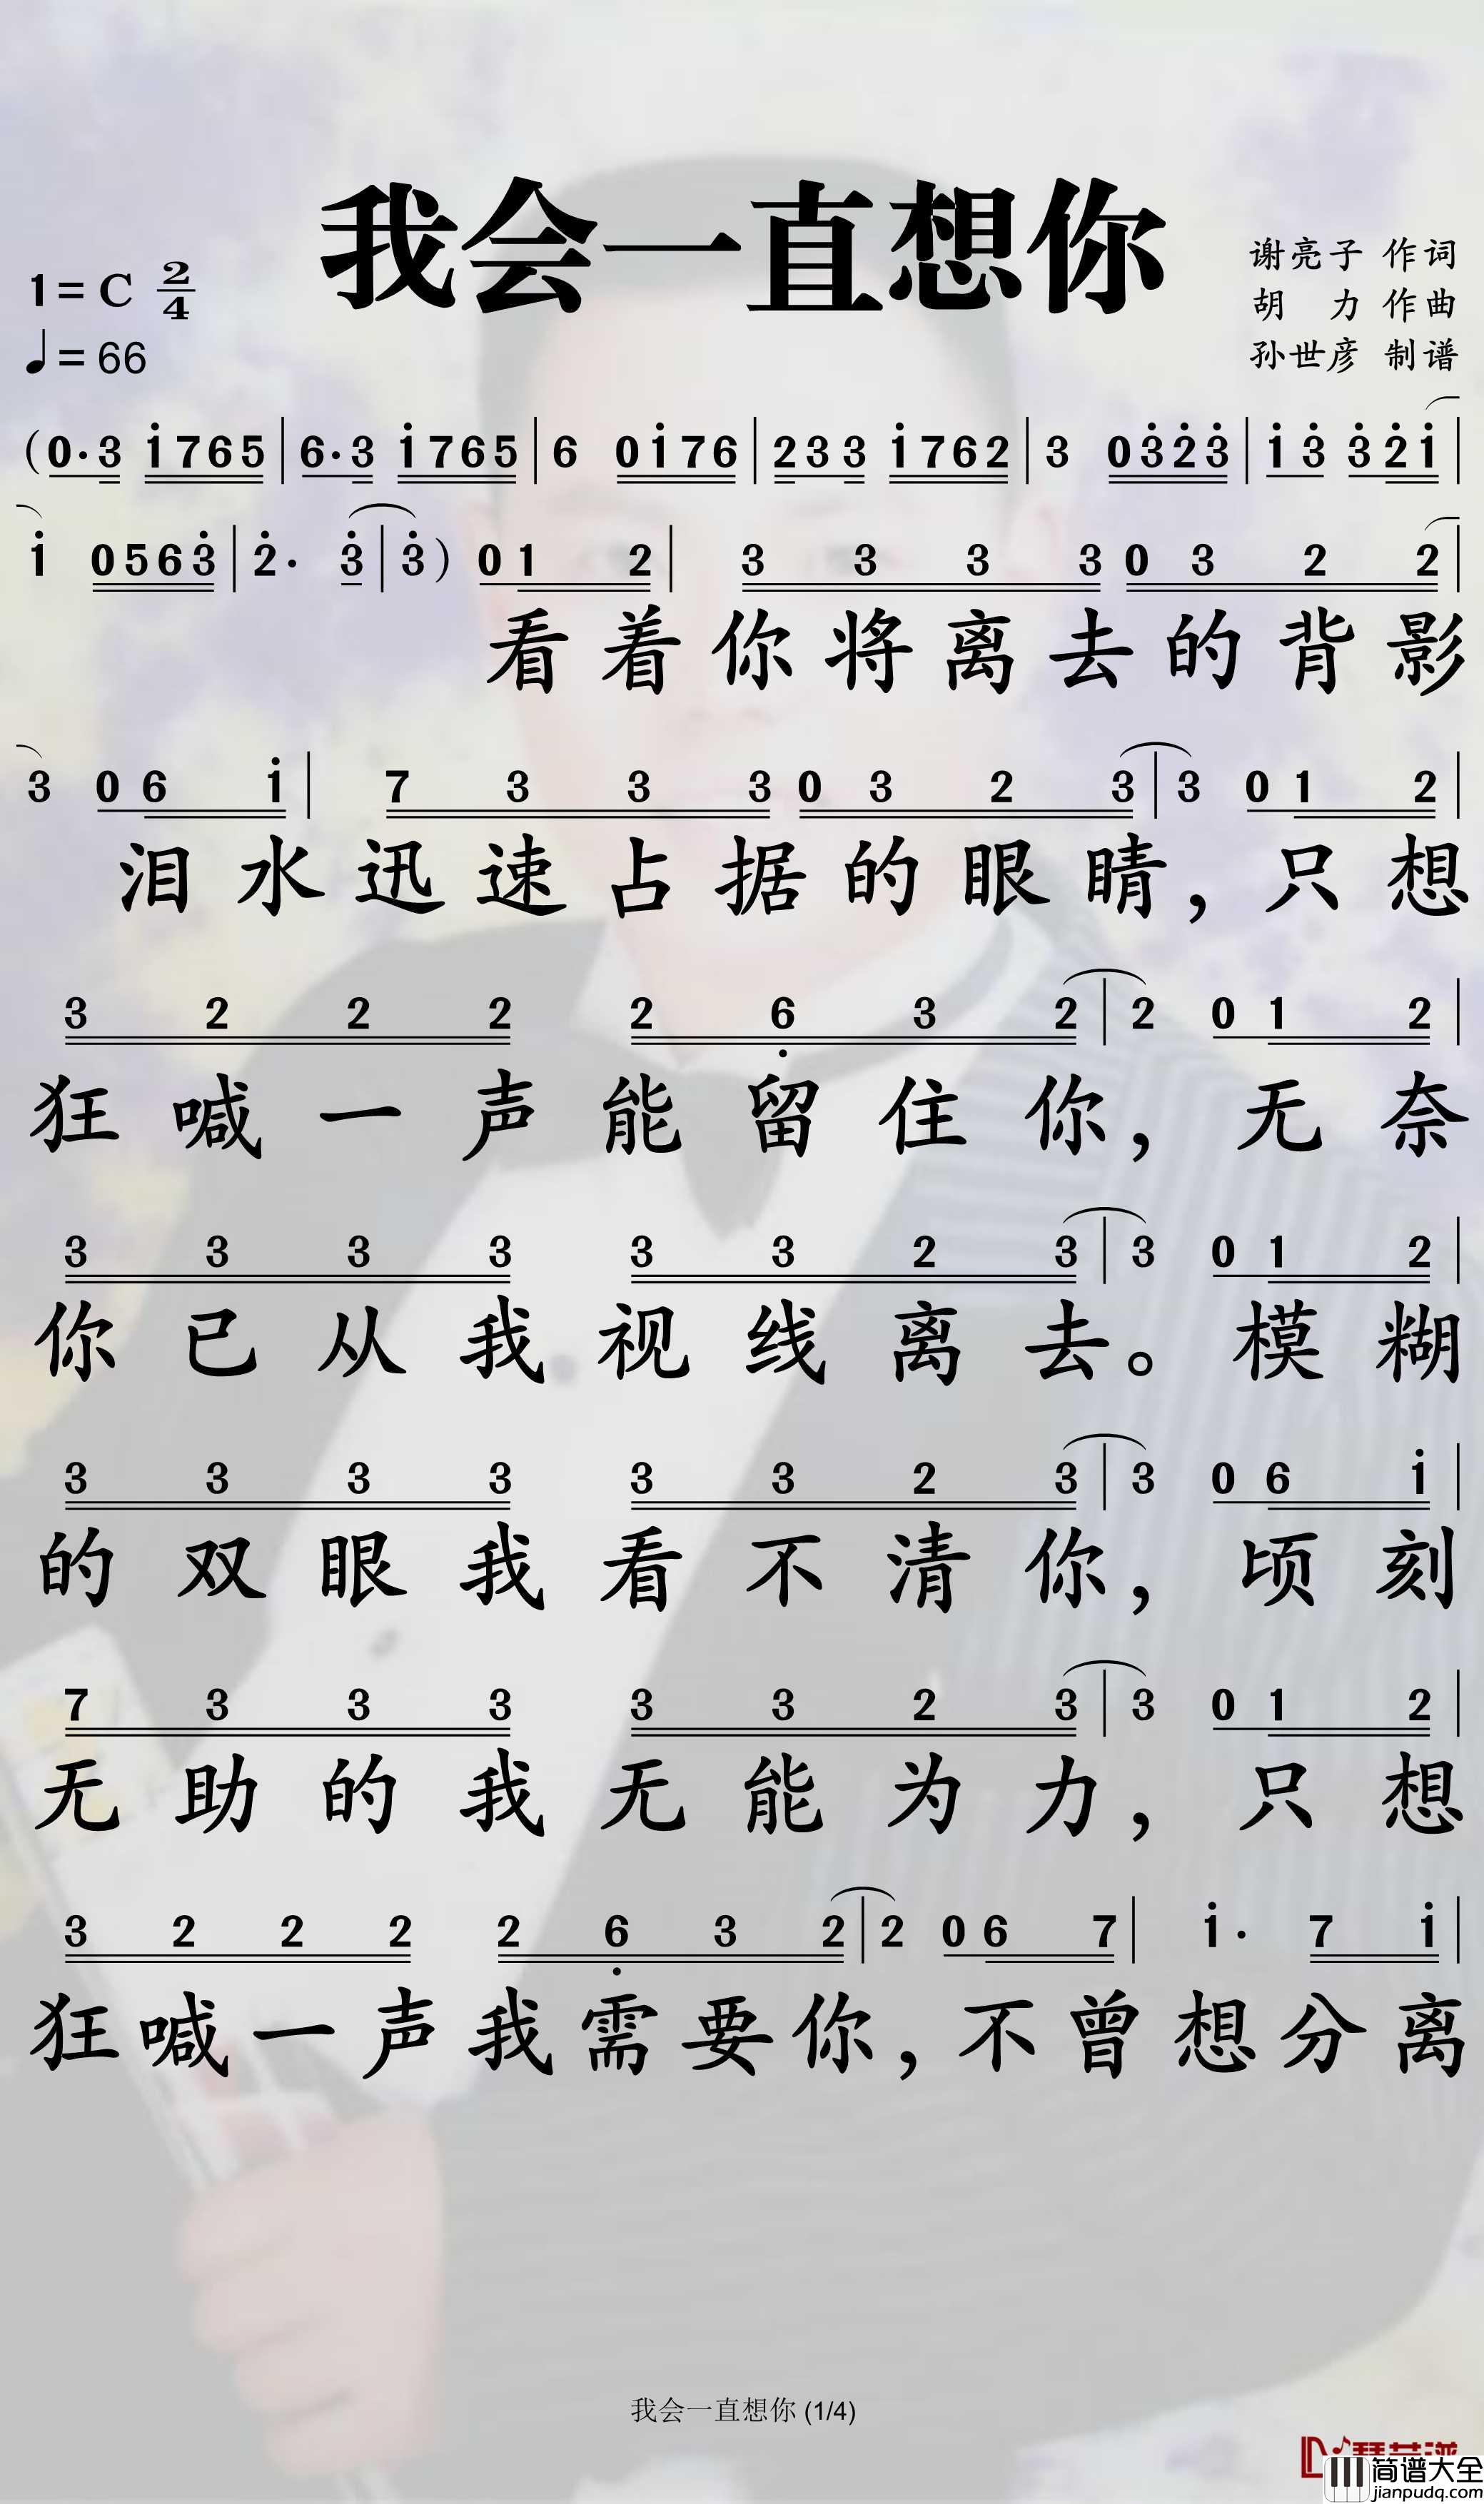 我会一直想你
1= C 2/4
♩= 66
谢亮子 作词
胡 力 作曲
孙世彦 制谱
(0·3 i765|6·3 i765|6 0i76|233 i762|3 03̇2̇3̇|i3̇ 3̇2̇i|
i 0563̇|2̇· 3̇|3̇) 01 2| 3 3 3 3 0 3 2 2|
看着你将离去的背影
3 06 i| 7 3 3 3 0 3 2 3|3 01 2|
泪水迅速占据的眼睛，只想
3 2 2 2 2 6̣ 3 2|2 01 2|
狂喊一声能留住你，无奈
3 3 3 3 3 3 2 3|3 01 2|
你已从我视线离去。模糊
3 3 3 3 3 3 2 3|3 06 i|
的双眼我看不清你，顷刻
7 3 3 3 3 3 2 3|3 01 2|
无助的我无能为力，只想
3 2 2 2 2 6̣ 3 2|2 06 7| i· 7 i|
狂喊一声我需要你，不曾想分离
我会一直想你 (1/4)
简谱大全
jianpudq.com